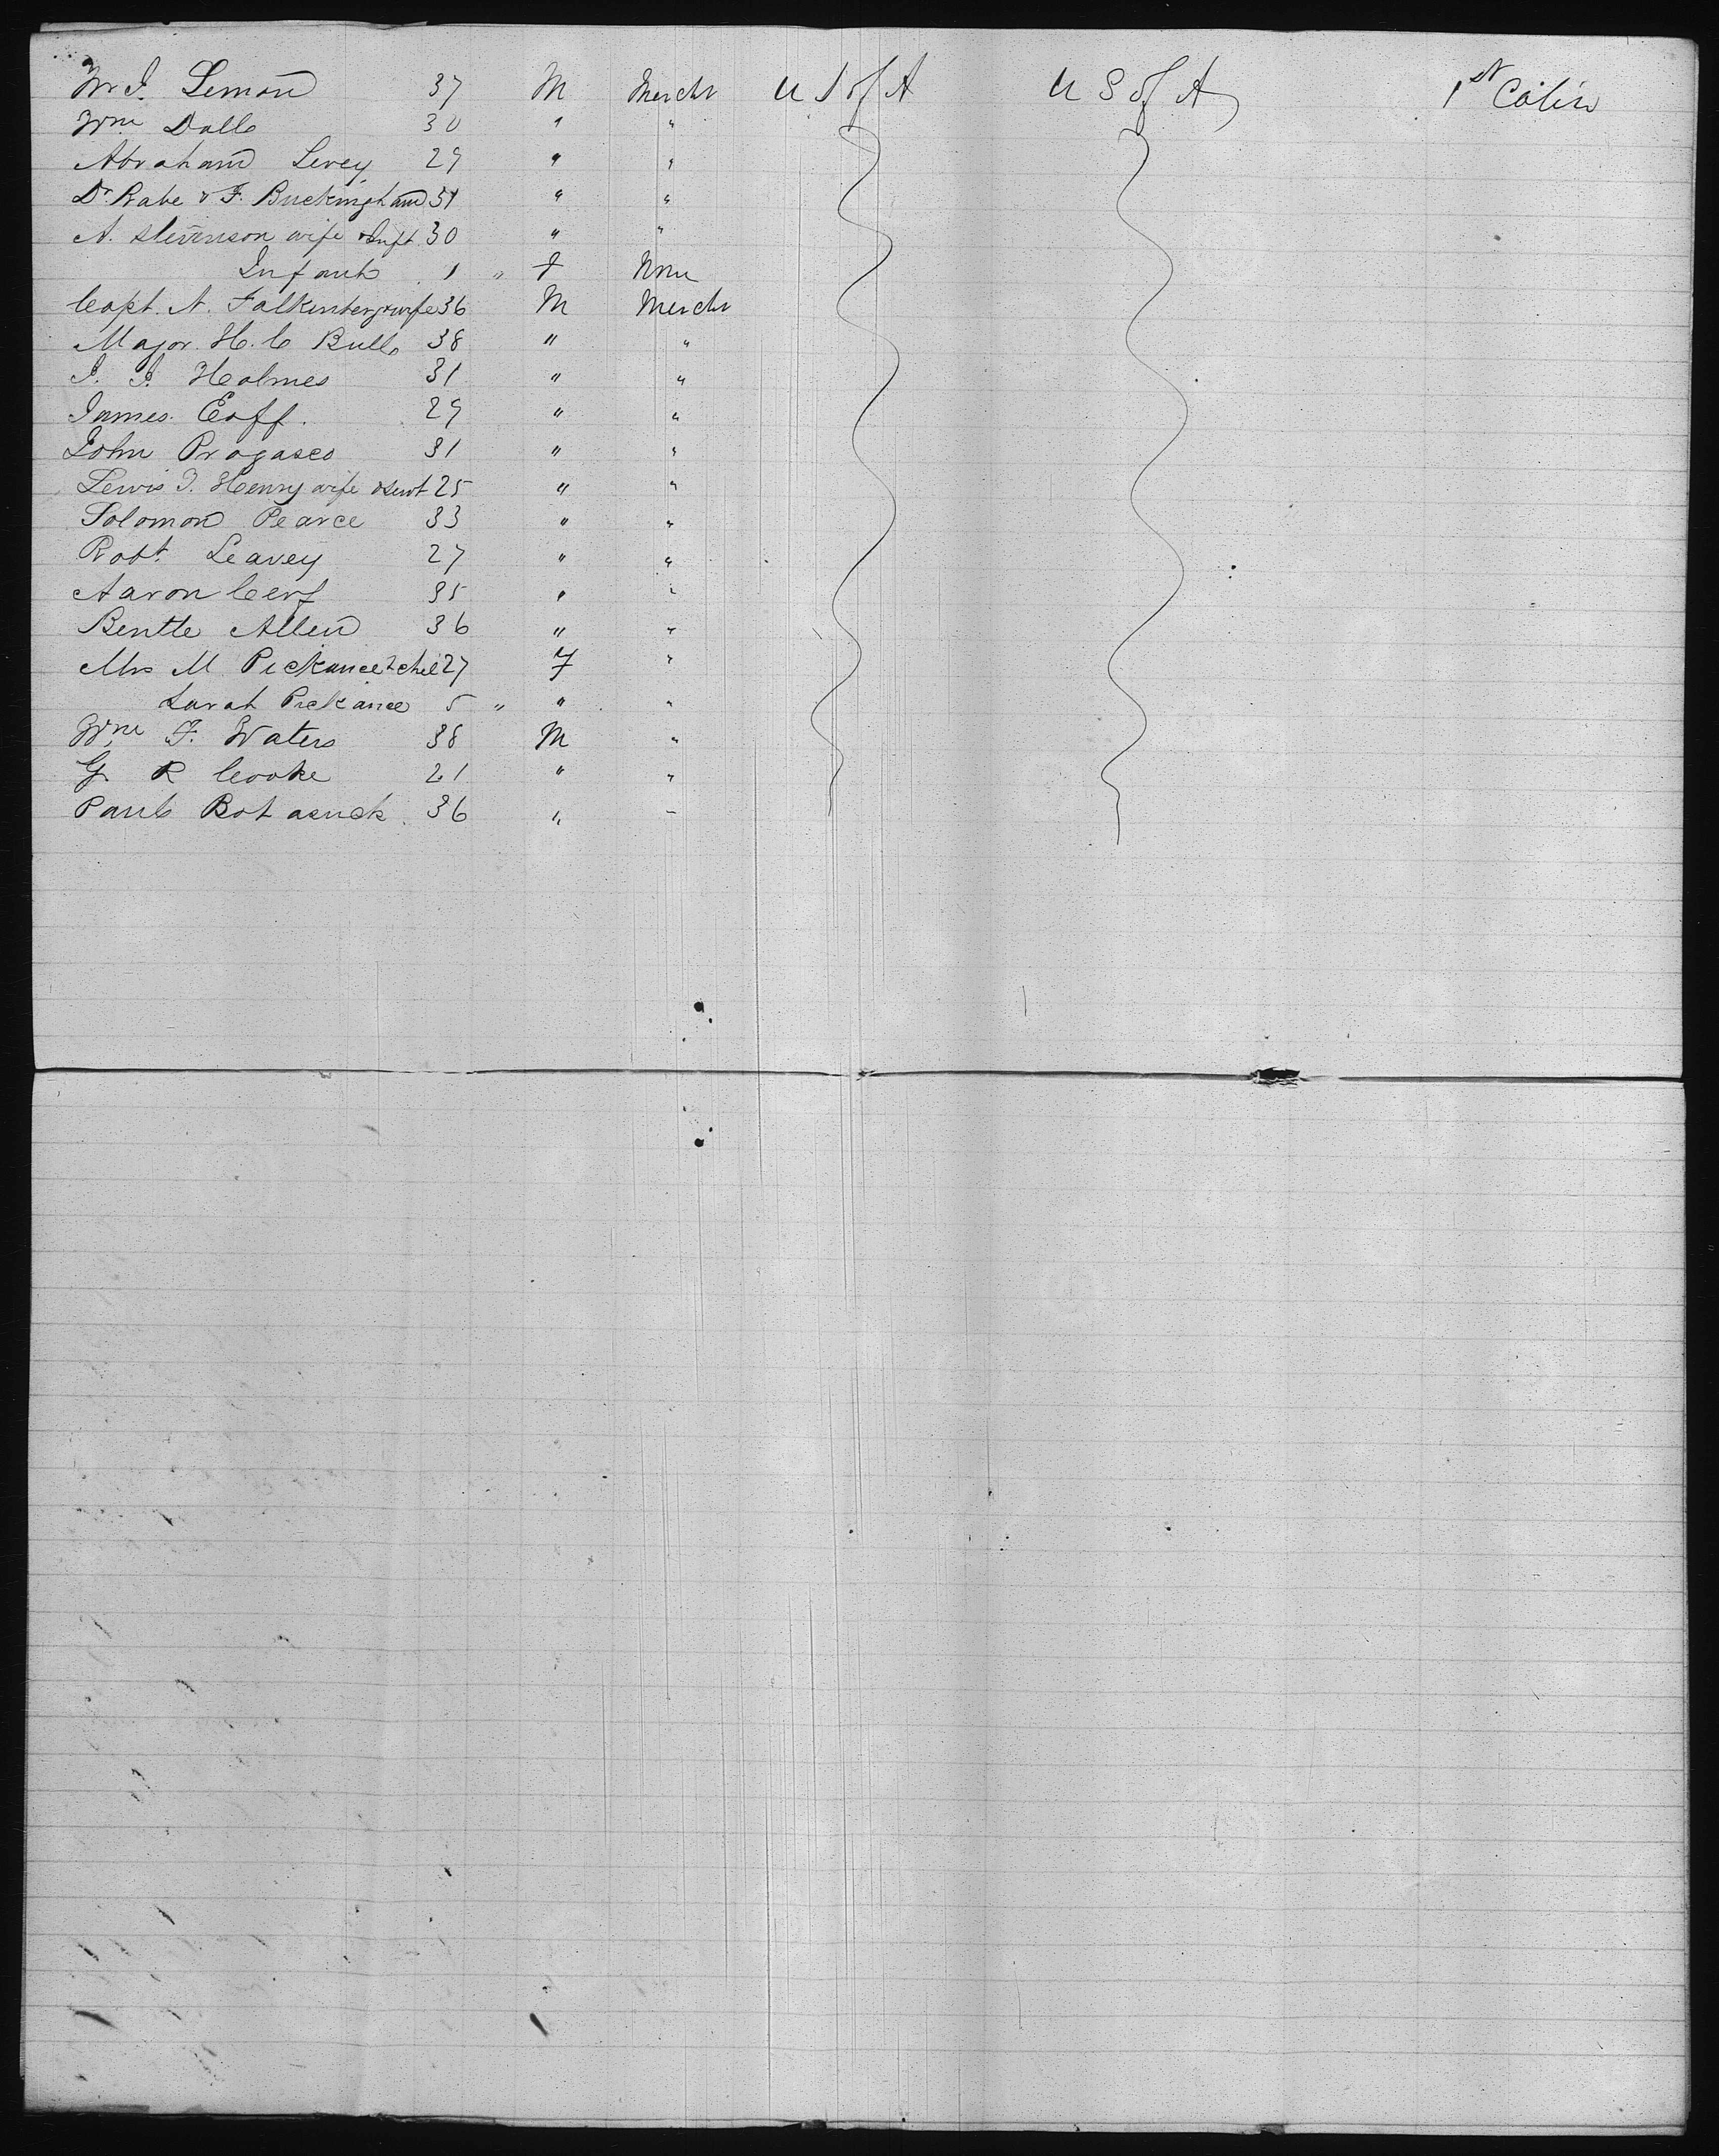 Wm J. Lemon 37 M Mercht U S of A U S of A 1st Cabin
Wm Dall 30 " "
Abraham Levey 29 " "
Dr Rabe & F. Buckingham 31 " "
A. Stevenson wife & Inft 30 " "
Infant 1 " F None
Capt. N. Falkenberg & wife 36 M Mercht
Major H. C Bull 38 " "
J. J. Holmes 31 " "
James Eoff. 29 " "
John Progasco 31 " "
Lewis J. Henry wife & Servt 25 " "
Solomon Pearce 33 " "
Robt. Leavey 27 " "
Aaron Cerf 35 " "
Bentle Allen 36 " "
Mrs M Pickance 2 chil 27 F "
Sarah Pickance 5 " " "
Wm F. Waters 38 M "
G R Cooke 21 " "
Paul 36 " "